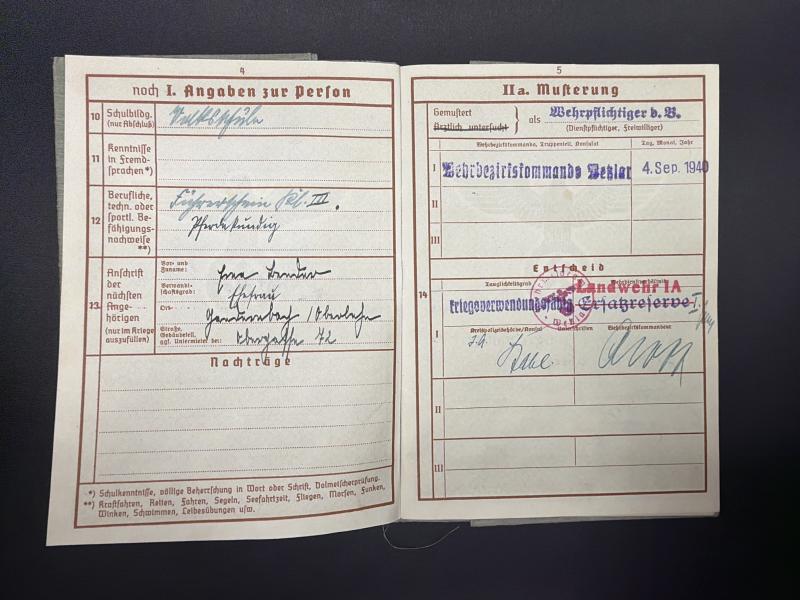 4
noch I. Angaben zur Person
10
Schulbildg.
(nur Abschluß)
Volksschule
11
Kenntnisse
in Fremd-
sprachen*)
12
Berufliche,
techn. oder
sportl. Be-
fähigungs-
nachweise
**)
Führerschein Kl. III.
Pferdekundig
13
Anschrift
der
nächsten
Ange-
hörigen
(nur im Kriege
auszufüllen)
Vor- und
Zuname:
Bender
Verwandt-
schaftsgrad:
Ehefrau
Ort:
Straße,
Gebäudeteil,
ggf. Untermieter bei:
Obergasse 72
Nachträge
*) Schulkenntnisse, völlige Beherrschung in Wort oder Schrift, Dolmetscherprüfung.
**) Kraftfahren, Reiten, Fahren, Segeln, Seefahrtzeit, Fliegen, Morsen, Funken,
Winken, Schwimmen, Leibesübungen usw.
5
IIa. Musterung
Gemustert
Ärztlich untersucht
als
Wehrpflichtiger b. B.
(Dienstpflichtiger, Freiwilliger)
Wehrbezirkskommando, Truppenteil, Konsulat
Tag, Monat, Jahr
I
Wehrbezirkskommando Wetzlar
4. Sep. 1940
II
III
Entscheid
14
Tauglichkeitsgrad
Landwehr IA
kriegsverwendungsfähig
Ersatzreserve I
I
Kreispolizeibehörde/Konsul
Unterschriften
Wehrbezirkskommandeur
II
III